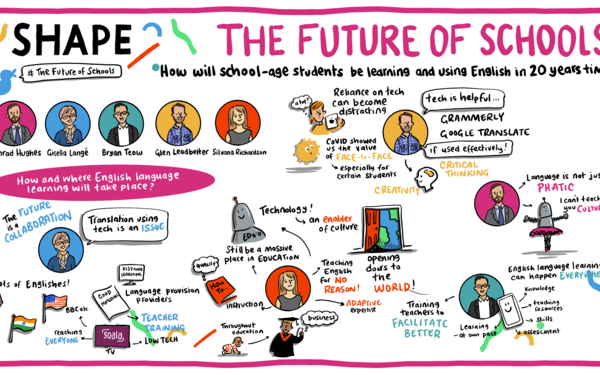 SHAPE
THE FUTURE OF SCHOOLS
# The Future of Schools
How will school-age students be learning and using English in 20 years tim
nrad Hughes
Gisella Langé
Bryan Teow
Glen Leadbetter
Silvana Richardson
How and where English language
learning will take place?
a lot?
Reliance on tech
can become
distracting
COVID showed
us the value
of FACE-to-FACE
especially for
certain students
tech is helpful...
GRAMMERLY
GOOGLE TRANSLATE
if used effectively!
CRITICAL
THINKING
CREATIVITY
Language is not jus
PHATIC
I can't teach
you CULTU
The FUTURE
is a
COLLABORATION
Translation using
tech is an ISSUE
DISTANCE
LEARNING
ots of Englishes!
BBC etc
Teaching
EVERYONE
TV
Language provision
providers
TEACHER
TRAINING
LOW TECH
Technology!
an enabler
of culture
Still be a massive
place in EDUCATION
QUALITY
How To...
instruction
Throughout
education
business
Teaching
English for
NO
REASON!
ADAPTIVE
expertise
opening
doors to
the
WORLD!
Training
teachers to
FACILITATE
BETTER
English language learning
can happen EVERYWHE
Knowledge
teaching
resources
skills
assessment
Learning
at own pace